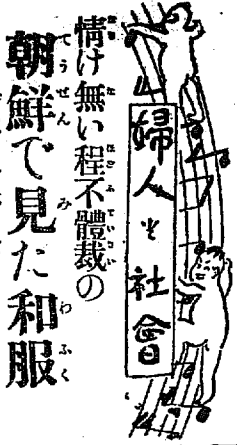 婦人と社會
情け無い程不體裁の
朝鮮で見た和服